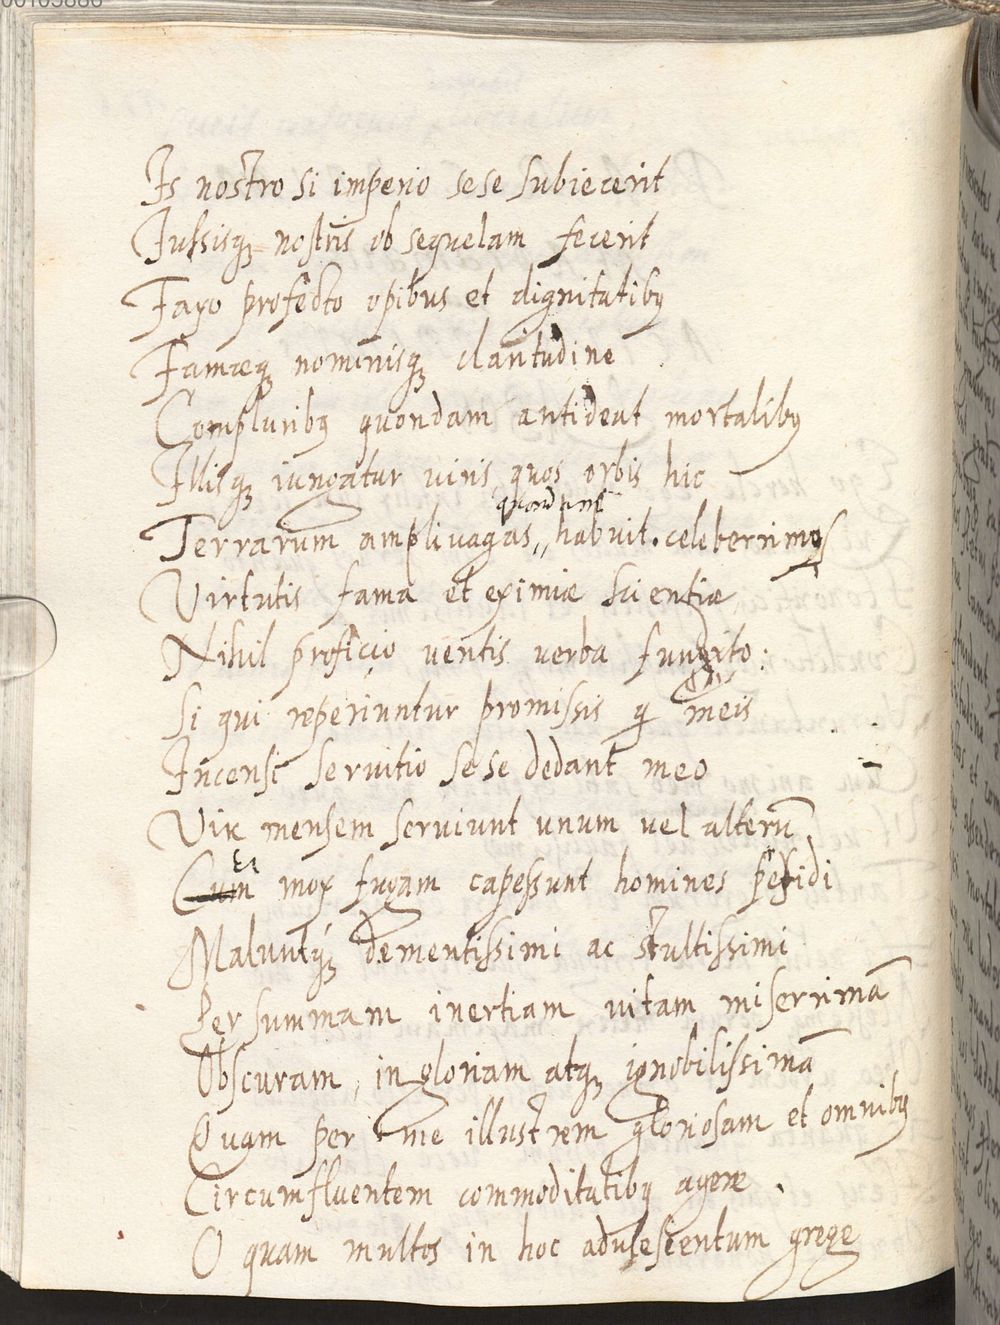 Is nostro si imperio sese subiecerit
Jussisq; nostris obsequelam fecerit
Faxo profecto opibus et dignitatibꝰ
Famæq; nominisq; claritudine
Compluribꝰ quondam antideat mortalibꝰ
Illisq; iungatur viris quos orbis hic
quondam
Terrarum amplivagas,, habuit. celeberrimos
Virtutis fama et eximiæ scientiæ
Nihil proficio ventis verba fundito:
Si qui reperiuntur promissis q meis
Incensi servitio sese dedant meo
Vix mensem serviunt unum vel alterū
Et
Cum mox fugam capessunt homines perfidi
Maluntq; dementissimi ac stultissimi
Per summam inertiam vitam miserrimā
Obscuram, ingloriam atq; ignobilissimā
Quam per me illustrem gloriosam et omnibꝰ
Circumfluentem commoditatibꝰ agere.
O quam multos in hoc adulescentum grege